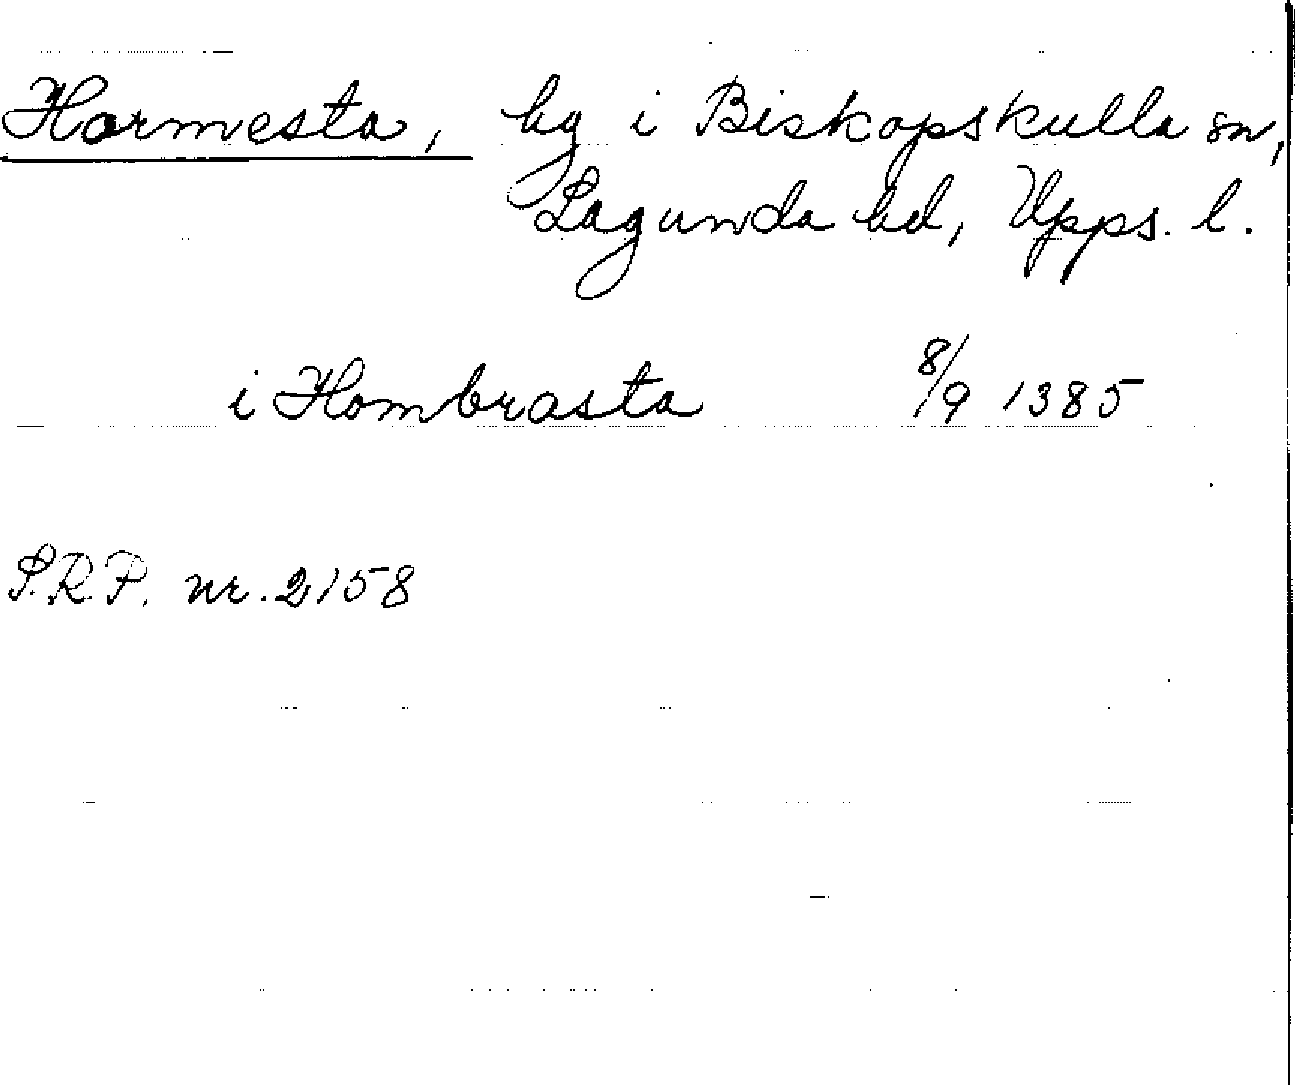 Harmesta, by i Biskopskulla sn,
Lagunda hd, Upps. l.
i Hombrasta 8/9 1385
S.R.P. nr. 2158